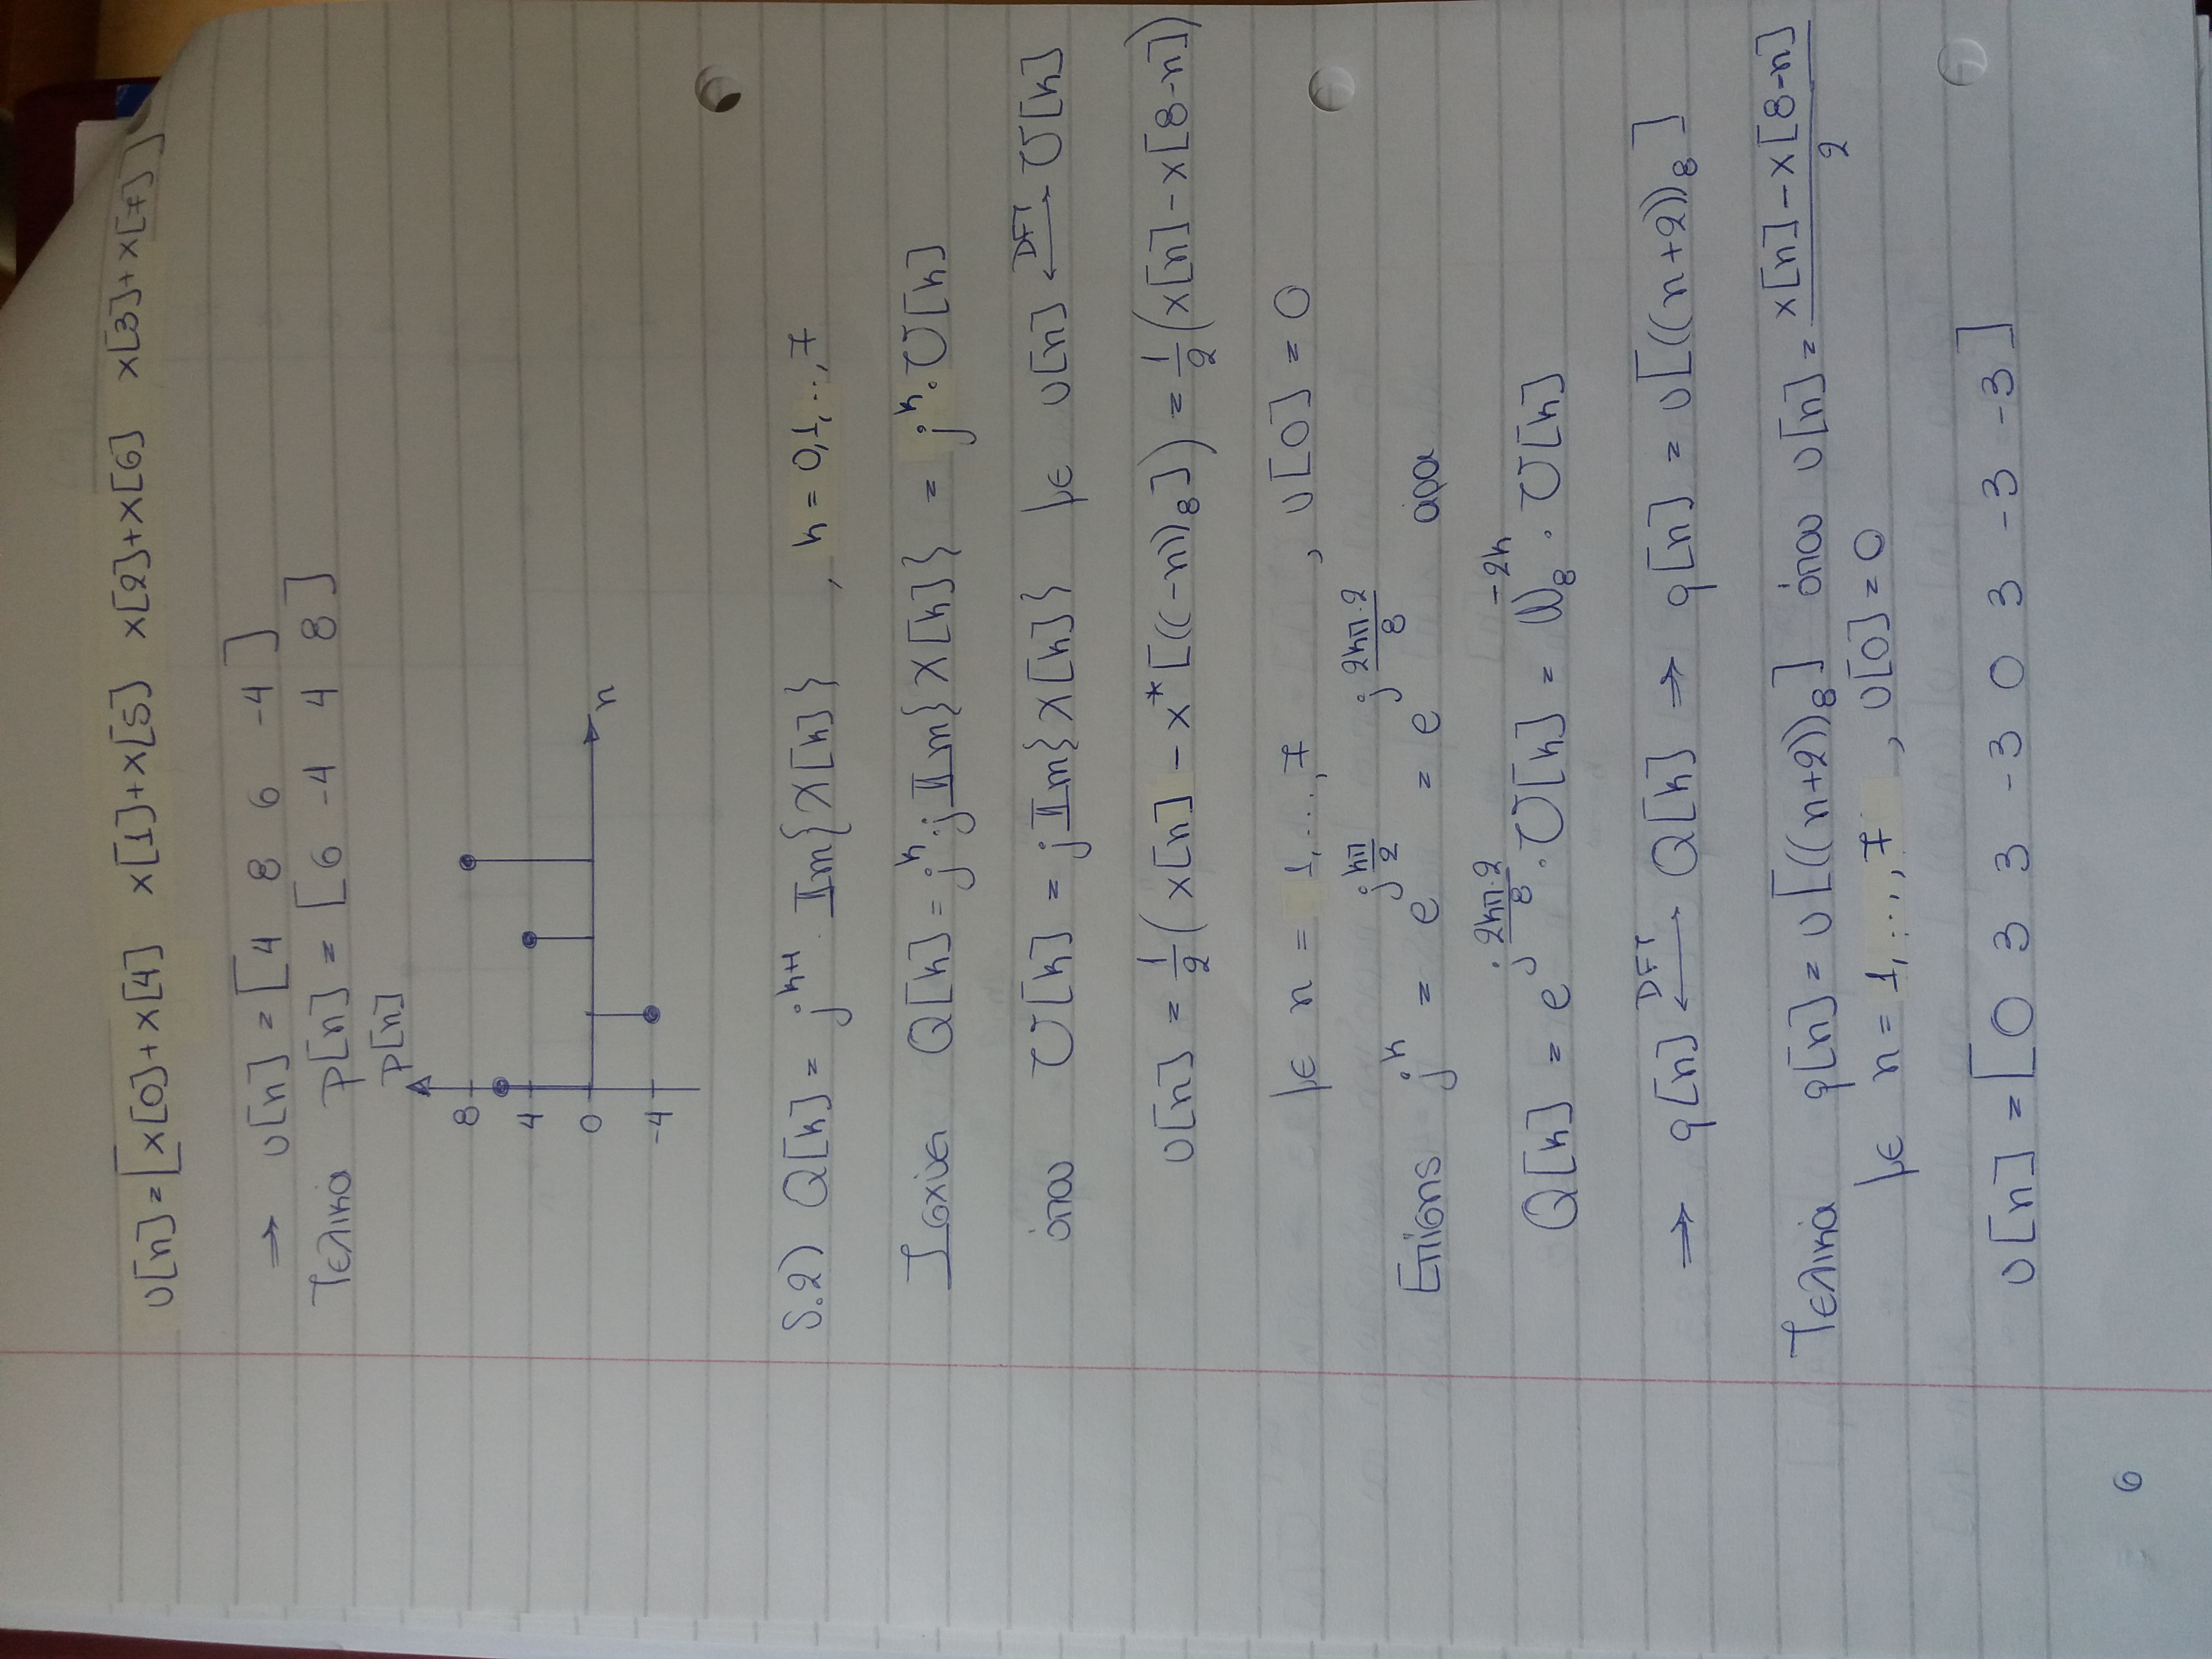 υ[n] = [x[0]+x[4] x[1]+x[5] x[2]+x[6] x[3]+x[7]]
⇒ υ[n] = [4 8 6 -4]
Τελικά p[n] = [6 -4 4 8]
p[n]
8
4
0
n
-4
5.2) Q[k] = j^{k+1} · Im{X[k]} , k = 0,1,...,7
Ισχύει Q[k] = j^k · j Im{X[k]} = j^k · U[k]
όπου U[k] = j Im{X[k]} με υ[n] ⟷^{DFT} U[k]
υ[n] = \frac{1}{2}(x[n] - x*[((-n))_8]) = \frac{1}{2}(x[n] - x[8-n])
με n = 1,...,7 , υ[0] = 0
Επίσης j^k = e^{j\frac{kπ}{2}} = e^{j\frac{2kπ·2}{8}} άρα
Q[k] = e^{j\frac{2kπ·2}{8}} · U[k] = W_8^{-2k} · U[k]
⇒ q[n] ⟷^{DFT} Q[k] ⇒ q[n] = υ[((n+2))_8]
Τελικά q[n] = υ[((n+2))_8] όπου υ[n] = \frac{x[n]-x[8-n]}{2}
με n = 1,...,7 , υ[0] = 0
υ[n] = [0 3 3 -3 0 3 -3 -3]
6